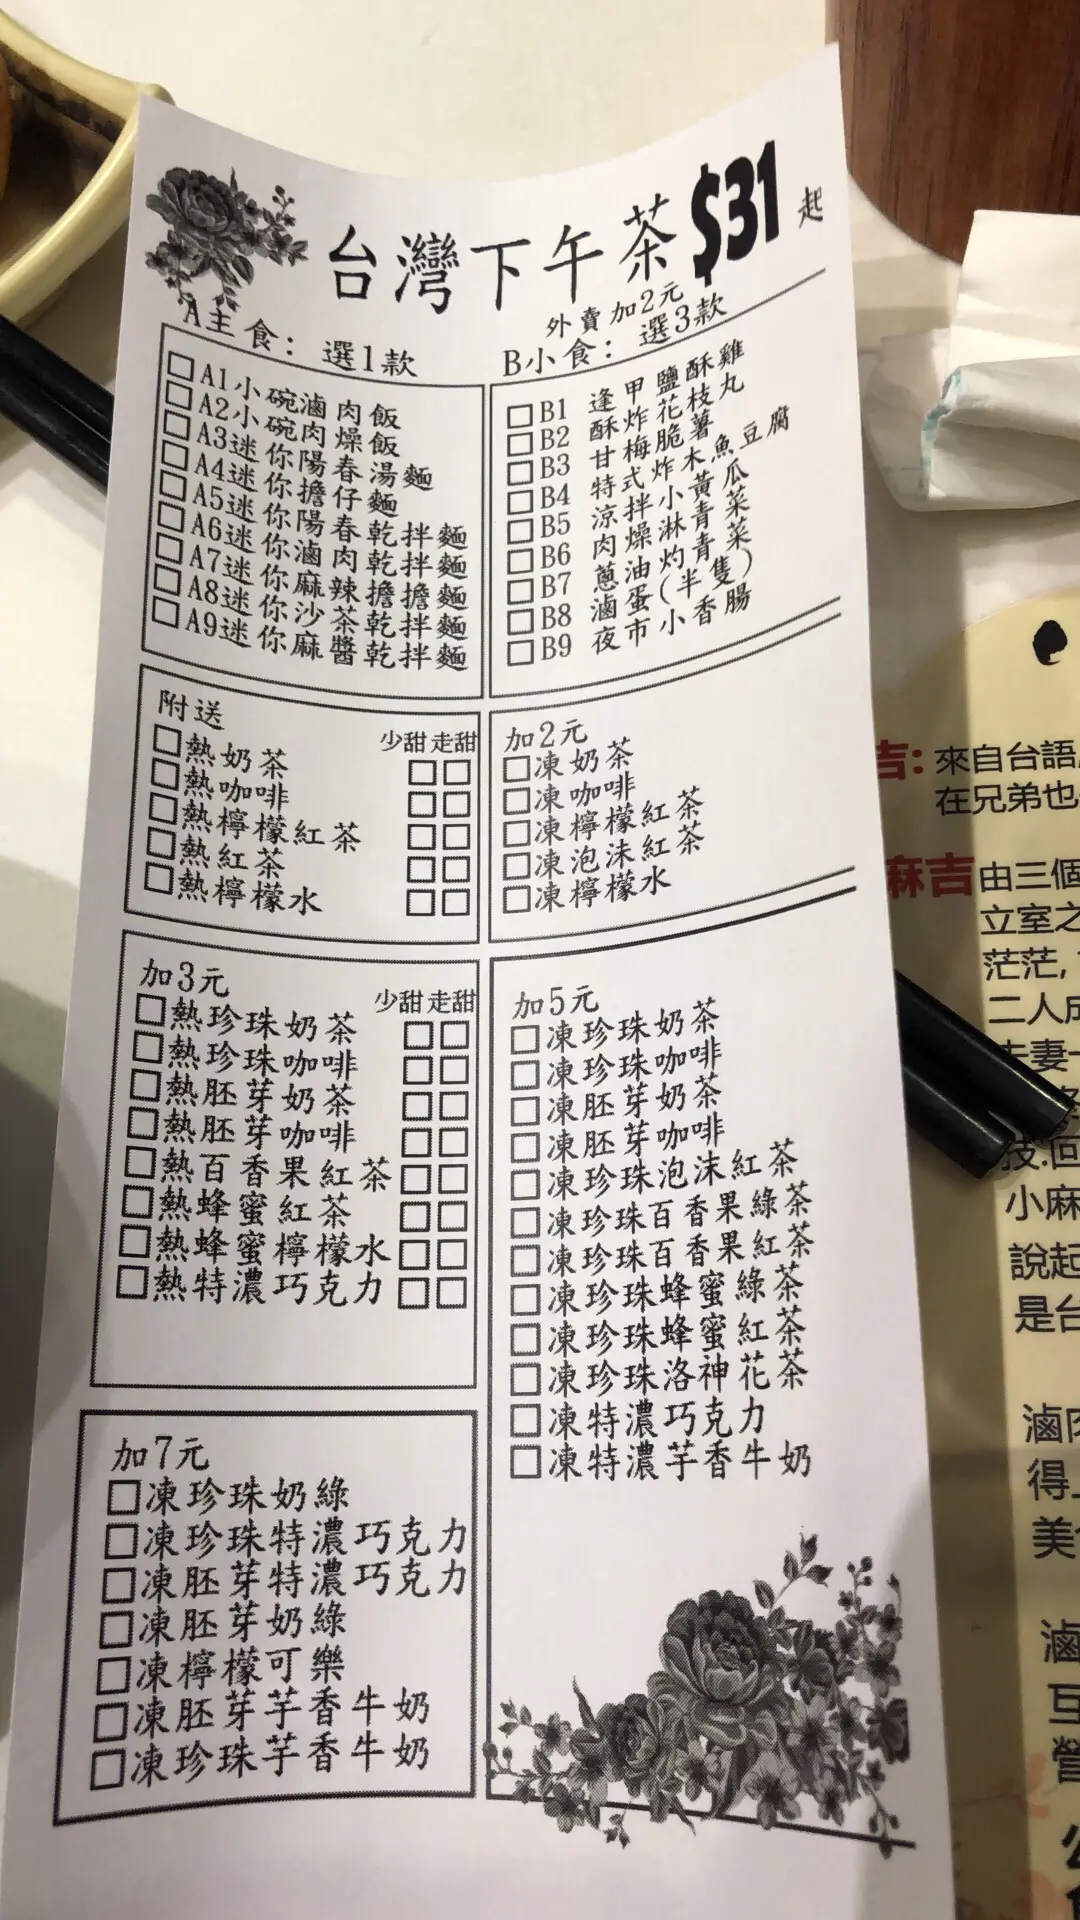 台灣下午茶$31起
外賣加2元
A主食：選1款
A1小碗滷肉飯
A2小碗肉燥飯
A3迷你陽春湯麵
A4迷你擔仔麵
A5迷你陽春乾拌麵
A6迷你滷肉乾拌麵
A7迷你麻辣擔擔麵
A8迷你沙茶乾拌麵
A9迷你麻醬乾拌麵
B小食：選3款
B1 逢甲鹽酥雞
B2 酥炸花枝丸
B3 甘梅脆薯
B4 特式炸木魚豆腐
B5 涼拌小黃瓜
B6 肉燥淋青菜
B7 蔥油灼青菜
B8 滷蛋(半隻)
B9 夜市小香腸
附送
少甜 走甜
熱奶茶
熱咖啡
熱檸檬紅茶
熱紅茶
熱檸檬水
加2元
凍奶茶
凍咖啡
凍檸檬紅茶
凍泡沫紅茶
凍檸檬水
加3元
少甜 走甜
熱珍珠奶茶
熱珍珠咖啡
熱胚芽奶茶
熱胚芽咖啡
熱百香果紅茶
熱蜂蜜紅茶
熱蜂蜜檸檬水
熱特濃巧克力
加5元
凍珍珠奶茶
凍珍珠咖啡
凍胚芽奶茶
凍胚芽咖啡
凍珍珠泡沫紅茶
凍珍珠百香果綠茶
凍珍珠百香果紅茶
凍珍珠蜂蜜綠茶
凍珍珠蜂蜜紅茶
凍珍珠洛神花茶
凍特濃巧克力
凍特濃芋香牛奶
加7元
凍珍珠奶綠
凍珍珠特濃巧克力
凍胚芽特濃巧克力
凍胚芽奶綠
凍檸檬可樂
凍胚芽芋香牛奶
凍珍珠芋香牛奶
吉：來自台語
在兄弟也
麻吉 由三個
立室之
茫茫,
二人成
夫妻
技.回
小麻
說起
是台
滷肉
得
美
滷
互
營